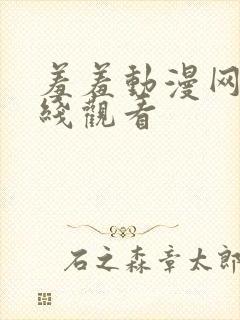 羞羞動漫网
綫觀看
石之森章太郎